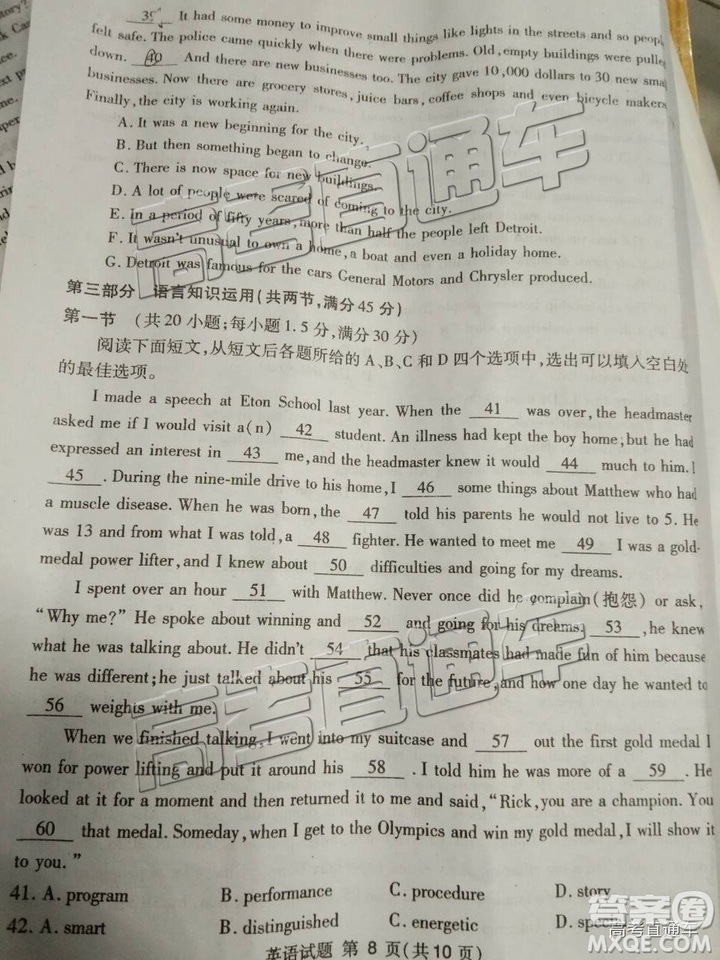 39 It had some money to improve small things like lights in the streets and so people
felt safe. The police came quickly when there were problems. Old, empty buildings were pulled
down. 40 And there are new businesses too. The city gave 10,000 dollars to 30 new small
businesses. Now there are grocery stores, juice bars, coffee shops and even bicycle makers
Finally, the city is working again.
A. It was a new beginning for the city.
B. But then something began to change.
C. There is now space for new buildings.
D. A lot of people were scared of coming to the city.
E. in a period of fifty years, more than half the people left Detroit.
F. It wasn't unusual to own a home, a boat and even a holiday home.
G. Detroit was famous for the cars General Motors and Chrysler produced.
第三部分 语言知识运用(共两节,满分45分)
第一节 (共20小题;每小题1.5分,满分30分)
阅读下面短文,从短文后各题所给的A、B、C和D四个选项中,选出可以填入空白处
的最佳选项。
I made a speech at Eton School last year. When the 41 was over, the headmaster
asked me if I would visit a(n) 42 student. An illness had kept the boy home; but he had
expressed an interest in 43 me, and the headmaster knew it would 44 much to him. I
45 . During the nine-mile drive to his home, I 46 some things about Matthew who had
a muscle disease. When he was born, the 47 told his parents he would not live to 5. He
was 13 and from what I was told, a 48 fighter. He wanted to meet me 49 I was a gold-
medal power lifter, and I knew about 50 difficulties and going for my dreams.
I spent over an hour 51 with Matthew. Never once did he complain(抱怨) or ask,
"Why me?" He spoke about winning and 52 and going for his dreams; 53 , he knew
what he was talking about. He didn't 54 that his classmates had made fun of him because
he was different; he just talked about his 55 for the future, and how one day he wanted to
56 weights with me.
When we finished talking, I went into my suitcase and 57 out the first gold medal I
won for power lifting and put it around his 58 . I told him he was more of a 59 . He
looked at it for a moment and then returned it to me and said, "Rick, you are a champion. You
60 that medal. Someday, when I get to the Olympics and win my gold medal, I will show it
to you."
41. A. program B. performance C. procedure D. story
42. A. smart B. distinguished C. energetic D. special
英语试题 第8页(共10页)
高考直通车
高考直通车
高考直通车
答案圈
MXQE.COM